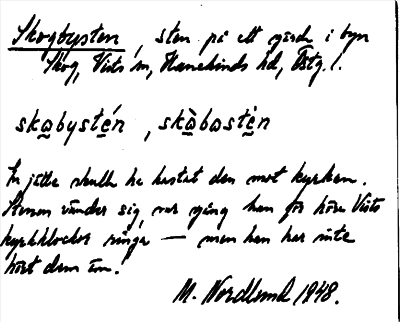 Skogbysten, sten på ett gärde i byn
Skog, Vists sn, Hanekinds hd, Östg.l.
skabystén, skàbastèn
En jätte skulle ha kastat den mot kyrkan.
Stenen vänder sig, var gång han får höra Vists
kyrkklockor ringa — men han har inte
hört dem än.
M. Nordlund 1948.